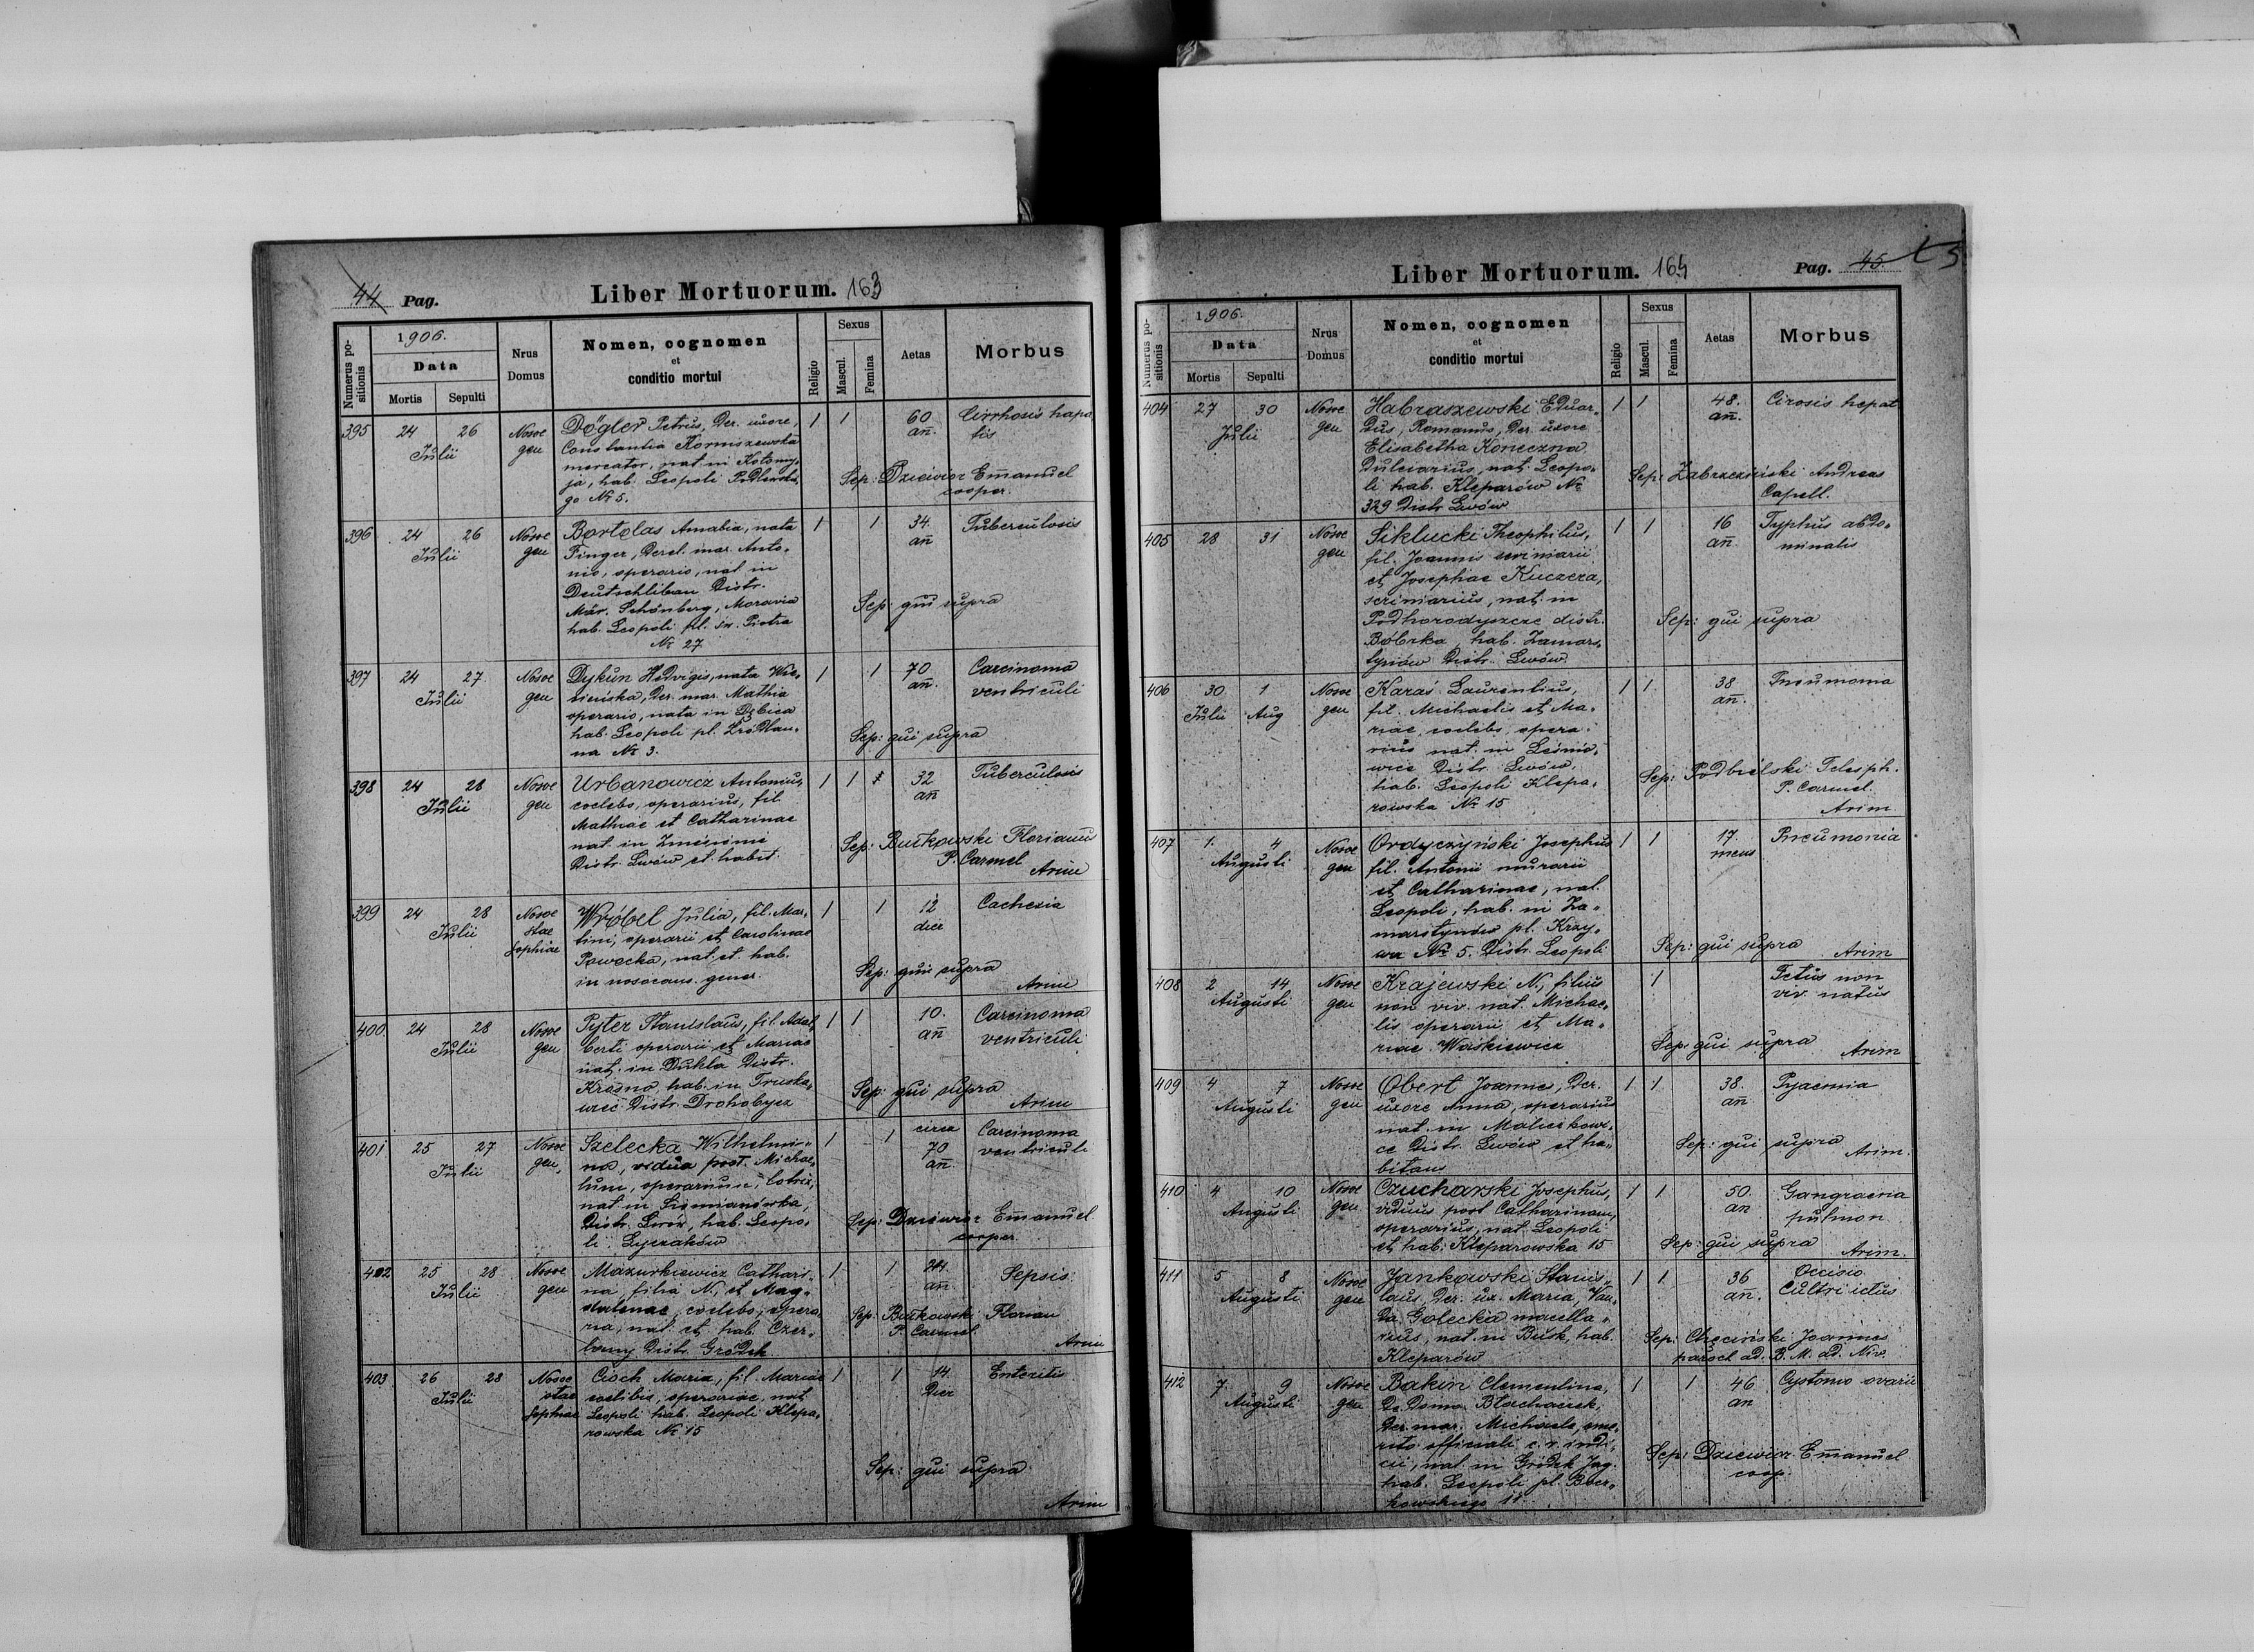 44 Pag.
Liber Mortuorum. 163
Numerus positionis
1906.
Data
Mortis Sepulti
Nrus Domus
Nomen, cognomen
et
conditio mortui
Religio
Sexus
Mascul. Femina
Aetas
Morbus
395 24 26 Julii Nosoc gen
Dögler Petrus, Der. uxore,
Constantia Korniszewska
mercator, nat. in Kołomy„
ja, hab. Leopoli Podlewskie
go № 5.
1 1 60 añ. Cirrhosis hapa
tis
Sep: Dziewior Emanuel
cooper.
396 24 26 Julii Nosoc gen
Bartolas Amabia, nata
Finger, Derel. mar. Anto„
nio, operario, nat in
Deutschliban Distr.
Mär. Schönberg, Moravia
hab. Leopoli pl. św. Piotra
№ 27
1 1 34. añ Tuberculosis
Sep: qui supra
397 24 27 Julii Nosoc gen
Dykun Hedvigis, nata Wis„
niewska, Der. mar. Mathia
operario, nata in Dębica
hab. Leopoli pl. Źródlan„
na № 3.
1 1 70 añ. Carcinoma
ventriculi
Sep: qui supra
398 24 28 Julii Nosoc gen
Urbanowicz Antonius,
coelebs, operarius, fil.
Mathiae et Catharinae
nat. in Zniesienie
Distr. Lwów et habit.
1 1 32 añ Tuberculosis
Sep: Butkowski Florianus
P. Carmel
Arim
399 24 28 Julii Nosoc stae Sophiae
Wróbel Julia, fil. Mar„
tini, operarii et Carolinae
Pawecka, nat. et hab.
in nosocom. gener.
1 1 12 dier Cachexia
Sep: qui supra
Arim
400. 24 28 Julii Nosoc gen
Pyter Stanislaus, fil. Adal„
berti operarii et Mariae
nat. in Dukla Distr.
Krosno hab. in Truska„
wiec Distr. Drohobycz
1 1 10. añ Carcinoma
ventriculi
Sep: qui supra
Arim
401 25 27 Julii Nosoc gen,
Szelecka Wilhelmi„
na, vidua post. Michae„
lum, operarium, lotrix,
nat in Siemianówka,
Distr. Lwów, hab. Leopo„
li. Łyczaków
1 1 circa 70 añ. Carcinoma
ventriculi
Sep: Dziewior Emanuel
cooper
402 25 28 Julii Nosoc gen
Mazurkiewicz Cathari„
na, filia N., et Mag„
dalenae, coelebs, opera„
ria, nat. et hab. Czer„
lany Distr. Gródek
1 1 24. añ. Sepsis
Sep: Butkowski Florian
P. Carmel.
Arim
403 26 28 Julii Nosoc stae Sophiae
Cioch Maria, fil. Mariae
coelibis, operariae, nat
Leopoli hab. Leopoli Klepa„
rowska № 15
1 1 14. Dier Enteritis
Sep: qui supra
Arim
Liber Mortuorum. 164
Pag. 45
Numerus positionis
1906.
Data
Mortis Sepulti
Nrus Domus
Nomen, cognomen
et
conditio mortui
Religio
Sexus
Mascul. Femina
Aetas
Morbus
404 27 30 Julii Nosoc gen
Habraszewski Eduar„
dus, Romanus, Der. uxore
Elisabetha Koneczna
Dulciarius, nat. Leopo„
li hab. Kleparów №
329 Distr Lwów
1 1 48. añ. Cirosis hepat
Sep: Zabrzeziński Andreas
Capell.
405 28 31 Nosoc gen
Siklucki Theophilus,
fil. Joannis scriniarii
et Josephae Kuczera,
scriniarius, nat. in
Podhorodyszcze distr.
Bóbrka, hab. Zamars„
tynów Distr. Lwów
1 1 16 añ. Typhus abdo„
minalis
Sep: qui supra
406 30 Julii 1 Aug Nosoc gen
Karaś Laurentius,
fil. Michaelis et Ma„
riae, coelebs, opera„
rius nat. in Leśnio„
wice Distr. Lwów,
hab. Leopoli Klepa„
rowska № 15
1 1 38 añ. Pneumonia
Sep: Podbielski Telesph.
P. Carmel.
Arim.
407 1. 4 Augusti Nosoc gen
Ordyczyński Josephus
fil. Antonii murarii
et Catharinae, nat.
Leopoli, hab. in Za„
marstynów pl. Krzy„
wa № 5. Distr. Leopoli
1 1 17 mens Pneumonia
Sep: qui supra
Arim
408 2 14 Augusti Nosoc gen
Krajewski N., filius
non viv. nat. Michae„
lis operarii et Ma„
riae Waśkiewicz
1 Fetus non
viv. natus
Sep: qui supra
Arim
409 4 7 Augusti Nosoc gen
Obert Joannes, Der.
uxore Anna, operarius
nat. in Malickowi„
ce Distr. Lwów et ha„
bitans
1 1 38. añ Pyaemia
Sep: qui supra
Arim.
410 4 10 Augusti Nosoc gen
Czucharski Josephus,
viduus post Catharinam,
operarius, nat. Leopoli
et hab. Kleparowska 15
1 1 50. an Gangraena
pulmon
Sep: qui supra
Arim.
411 5 8 Augusti Nosoc gen
Jankowski Stanis„
laus, Der. ux. Maria, Van„
da Gołecka macella„
rius, nat. in Busk, hab.
Kleparów
1 1 36 an. Occisio
Cultri ictus
Sep: Chęciński Joannes
paroch ad. B. M. ad. Niv.
412 7 9 Augusti Nosoc gen
Bakin Clementina,
De Domo Błachaczek,
Der mar. Michaele, eme„
rito officiali c. r. indi„
cii, nat. in Gródek Jag.
hab. Leopoli pl. Bocz„
kowskiego 11.
1 1 46 an Cystoma ovarii
Sep: Dziewior Emanuel
coop.